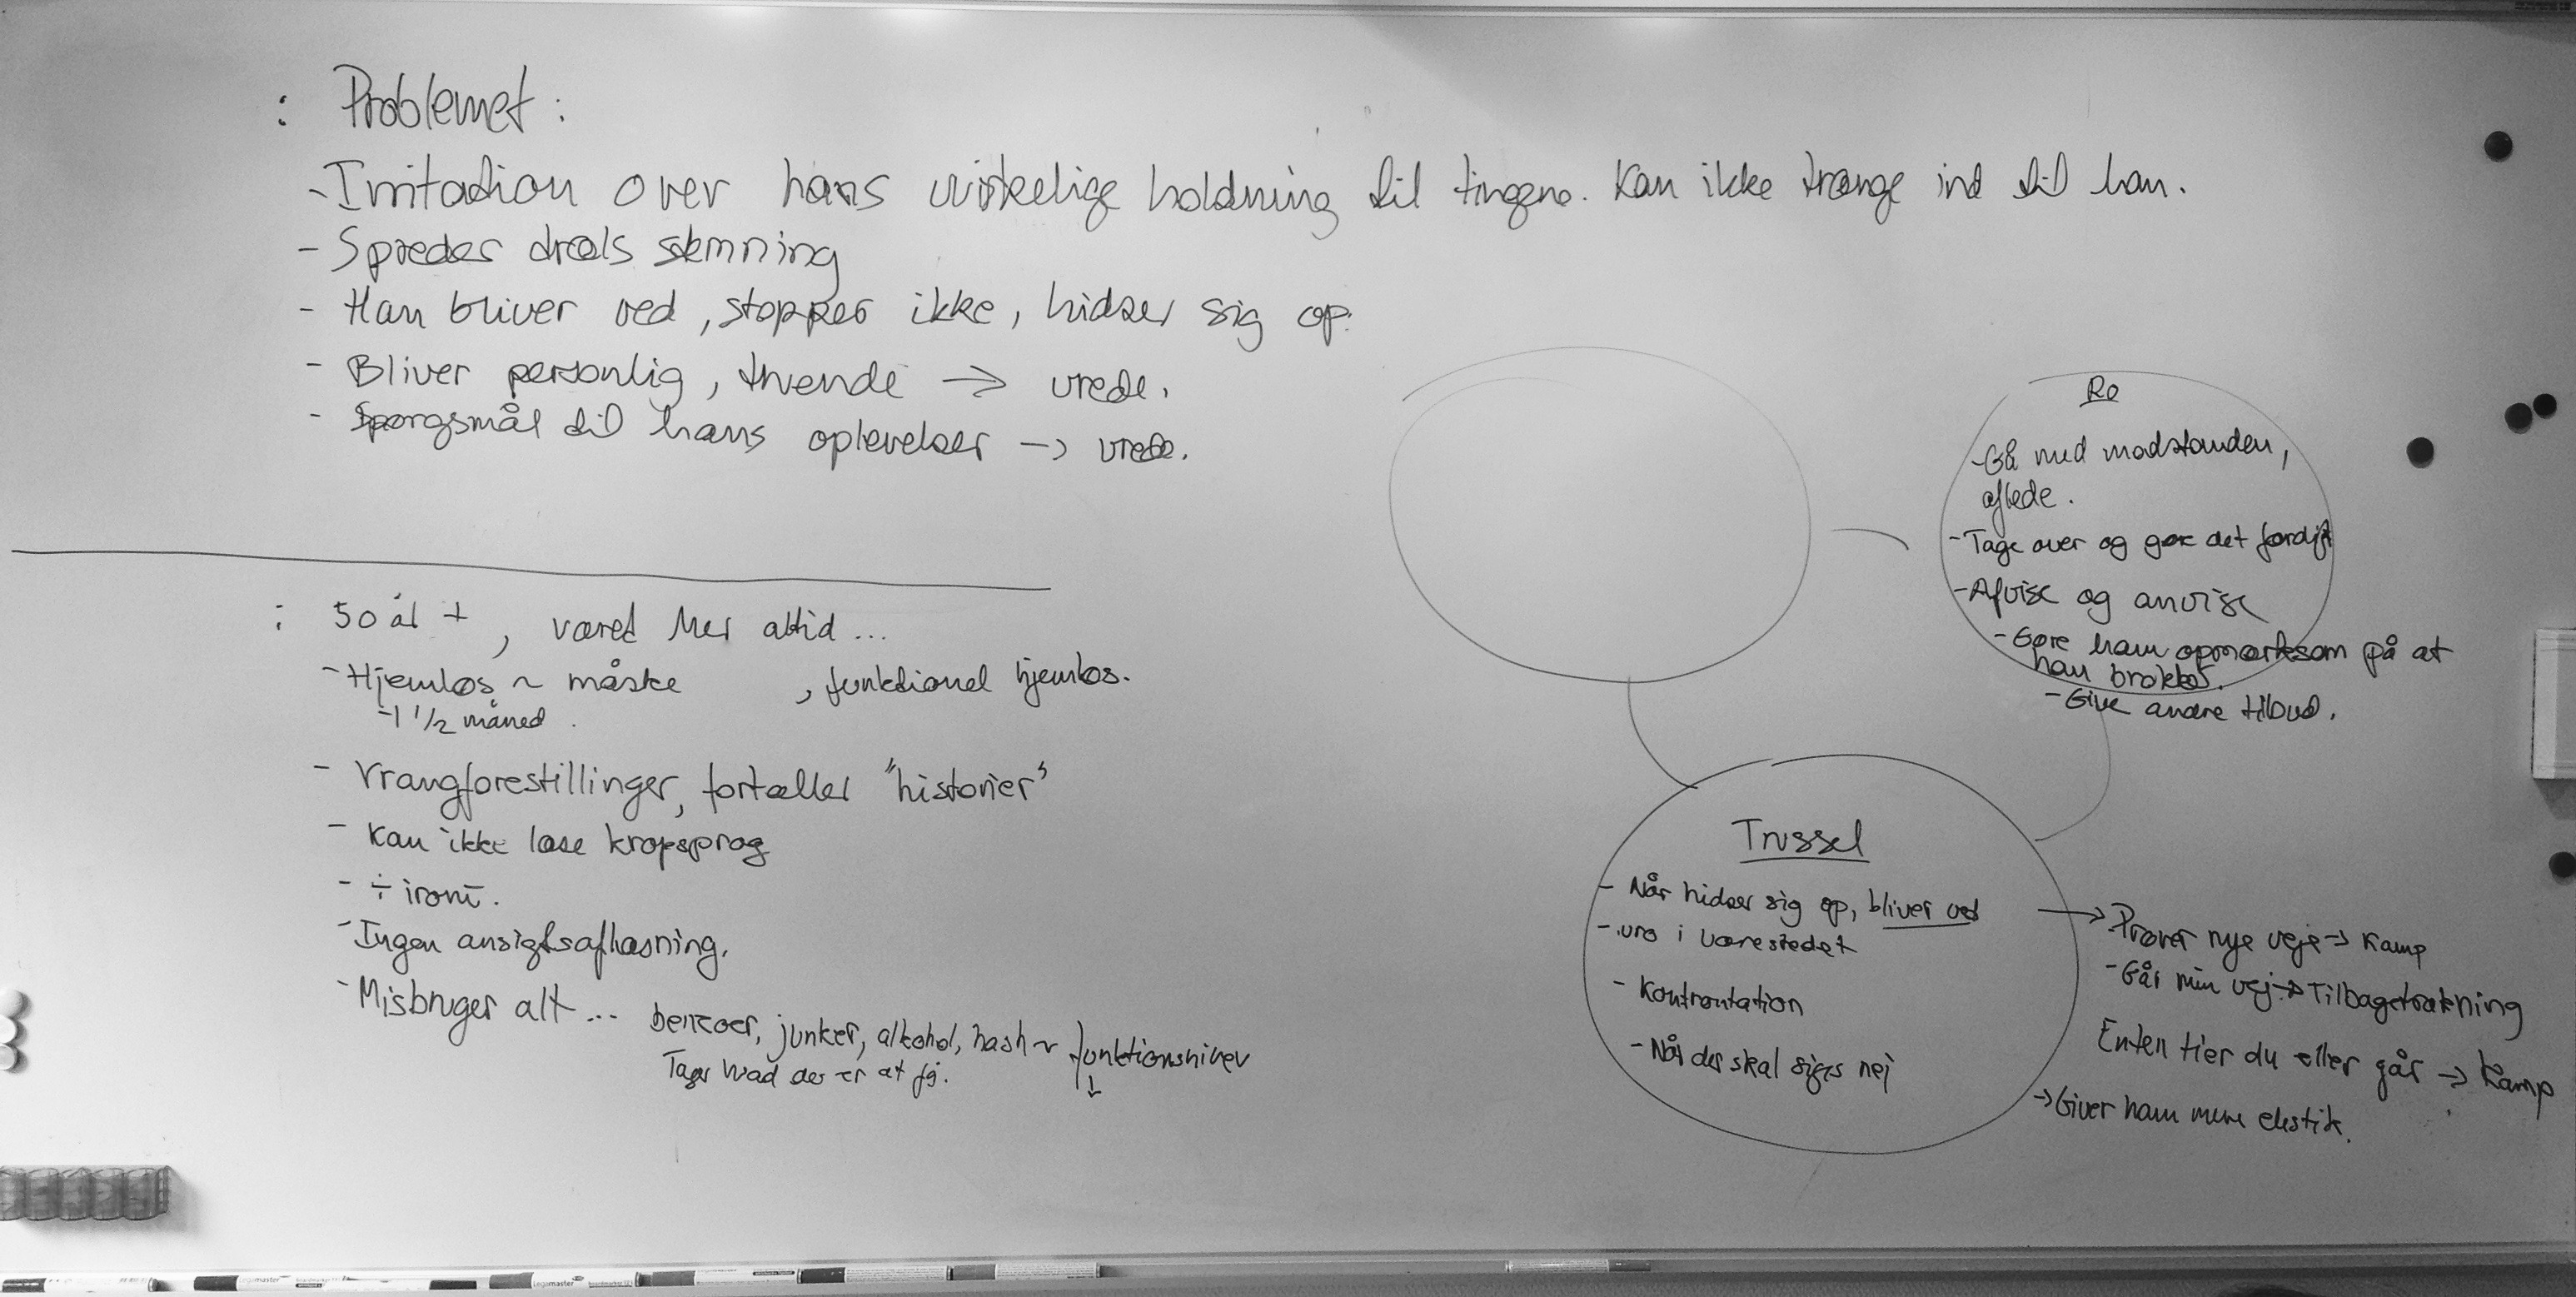 : Problemet :
- Irritation over hans virkelige holdning til tingene. Kan ikke trænge ind til han.
- Spreder træls stemning
- Han bliver ved, stopper ikke, hidser sig op.
- Bliver personlig, truende → vrede.
- Spørgsmål til hans oplevelser → vrede.
: 50 år + , været her altid ...
- Hjemløs ~ måske , funktionel hjemløs.
- 1 1/2 måned .
- Vrangforestillinger, fortæller "historier"
- Kan ikke læse kropsprog
- ÷ ironi.
- Ingen ansigtsaflæsning.
- Misbruger alt ... benzoer, junker, alkohol, hash ~ funktionsniveu
Tager hvad der er at få. ↓
Ro
- Gå med modstanden,
aflede.
- Tage over og gør det færdigt
- Afvise og anvise
- Gøre ham opmærksom på at
han brokker.
- Give andre tilbud.
Trussel
- Når hidser sig op, bliver ved
- uro i værestedet
- Konfrontation
- Når der skal siges nej
→ Prøver nye veje → Kamp
- Går min vej → Tilbagetrækning
Enten tier du eller går → Kamp
→ Giver ham mere elastik.